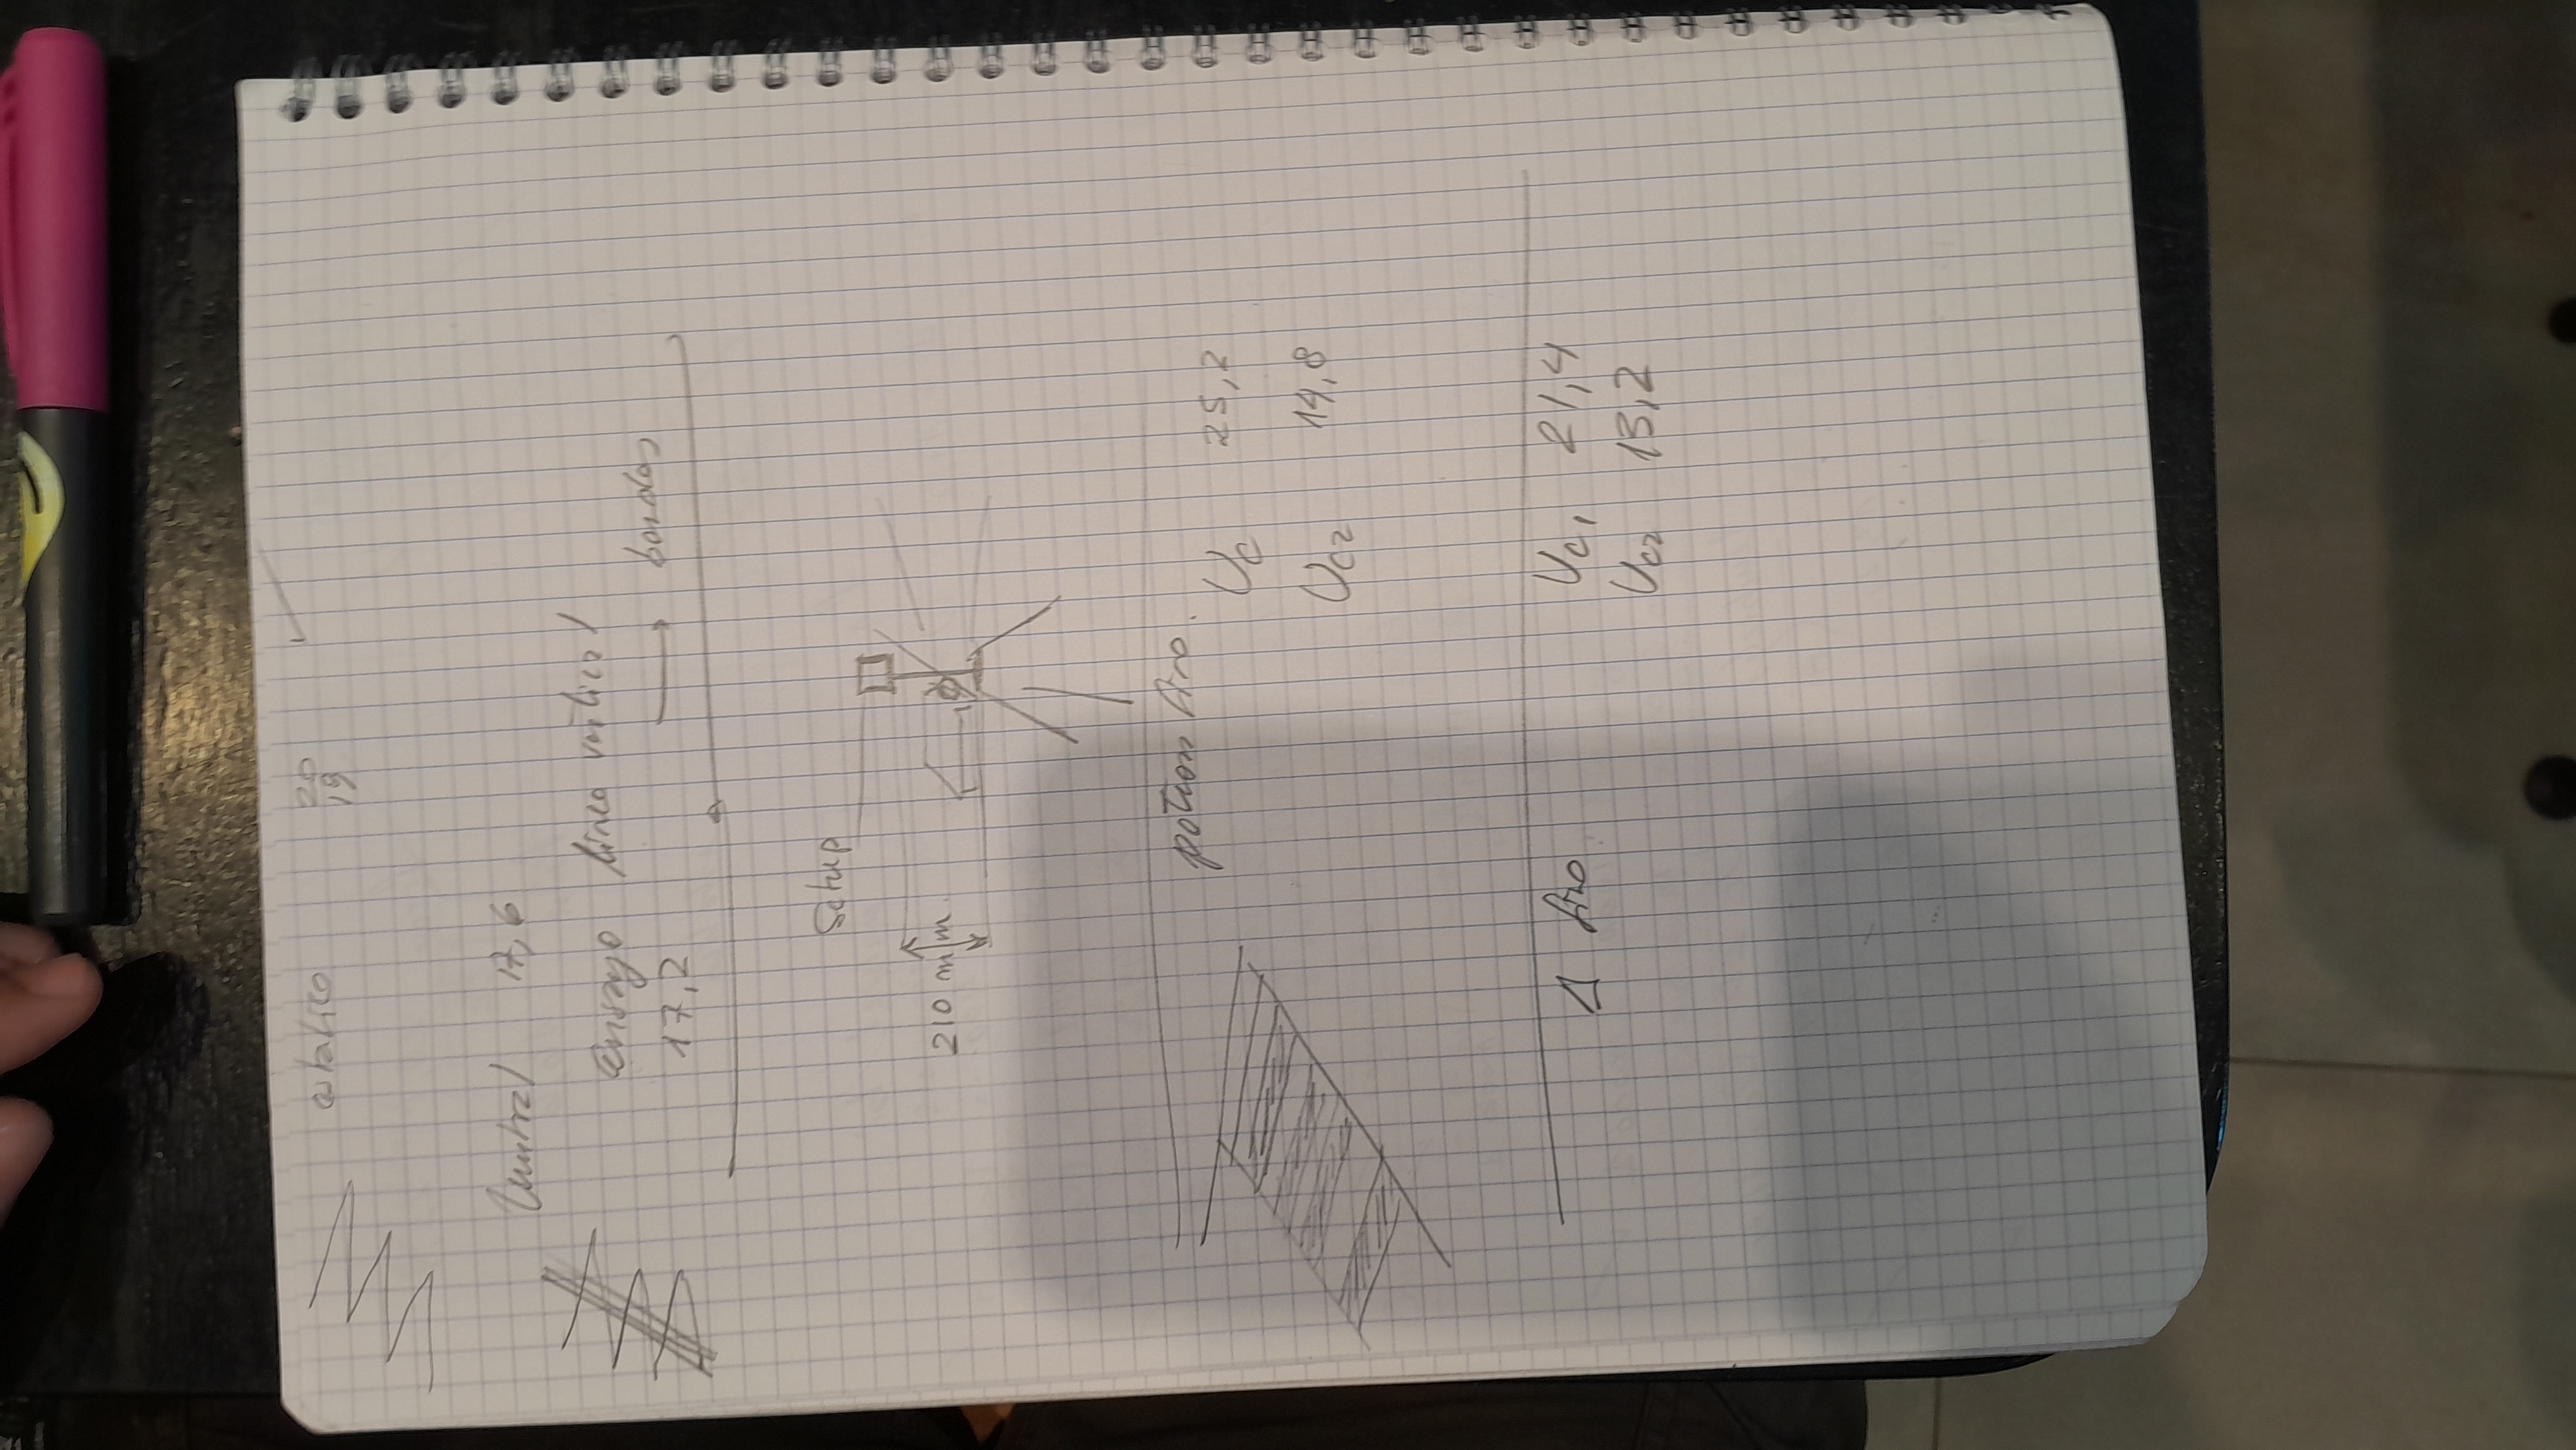 estatico 20
19
Central 17,6
ensayo linea vertical
17,2 → bordes
Setup
210 mm
fino.
Uc 25,2
Uc2 14,8
Δ fino
Uc1 21,4
Uc2 13,2